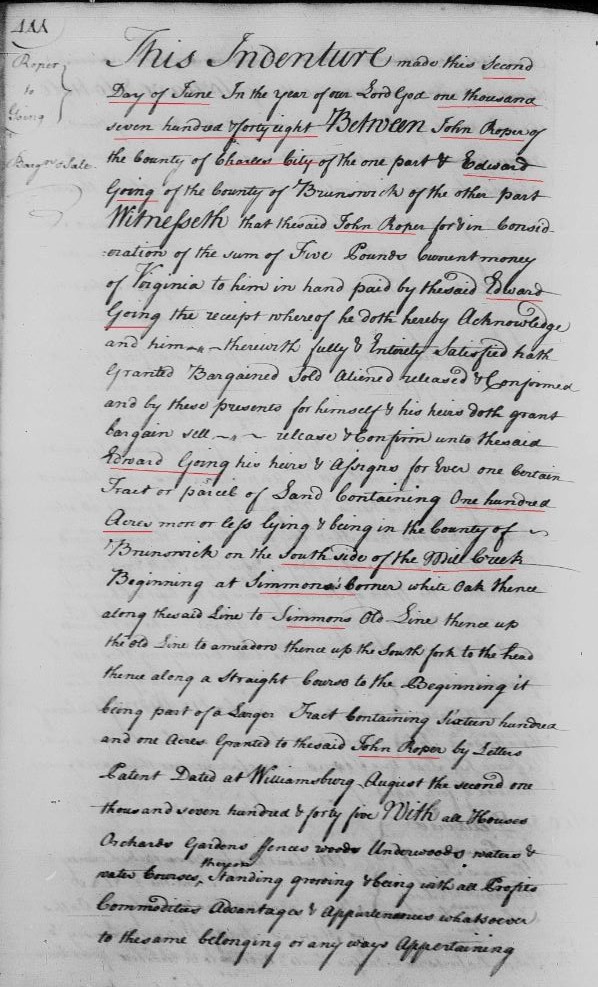 Roper
to
Going
Barg:n & Sale
This Indenture made this second
Day of June In the year of our Lord God one thousand
seven hundred & forty eight Between John Roper of
the County of Charles City of the one part & Edward
Going of the County of Brunswick of the other part
Witnesseth that the said John Roper for & in Consid-
-eration of the sum of Five Pounds Current money
of Virginia to him in hand paid by the said Edward
Going the receipt whereof he doth hereby Acknowledge
and him therewith fully & Entirely Satisfied hath
Granted Bargained Sold Aliened released & Confirmed
and by these presents for himself & his heirs doth grant
bargain sell release & Confirm unto the said
Edward Going his heirs & Assigns for Ever one Certain
Tract or parcel of Land Containing One hundred
Acres mor or less lying & being in the County of
Brunswick on the South side of the Mill Creek
Beginning at Simmons's Corner white Oak thence
along the said Line to Simmons Old Line thence up
the old Line to a meadow thence up the South fork to the head
thence along a Straight Course to the Beginning it
being part of a Larger Tract Containing Sixteen hundred
and one Acres Granted to the said John Roper by Letters
Patent Dated at Williamsburg August the second one
thousand seven hundred & forty five With all Houses
Orchards Gardens ffences woods Underwoods waters &
water Courses, thereon Standing growing & being with all Profits
Commodities Advantages & Appurtenances whatsoever
to the same belonging or any ways Appertaining